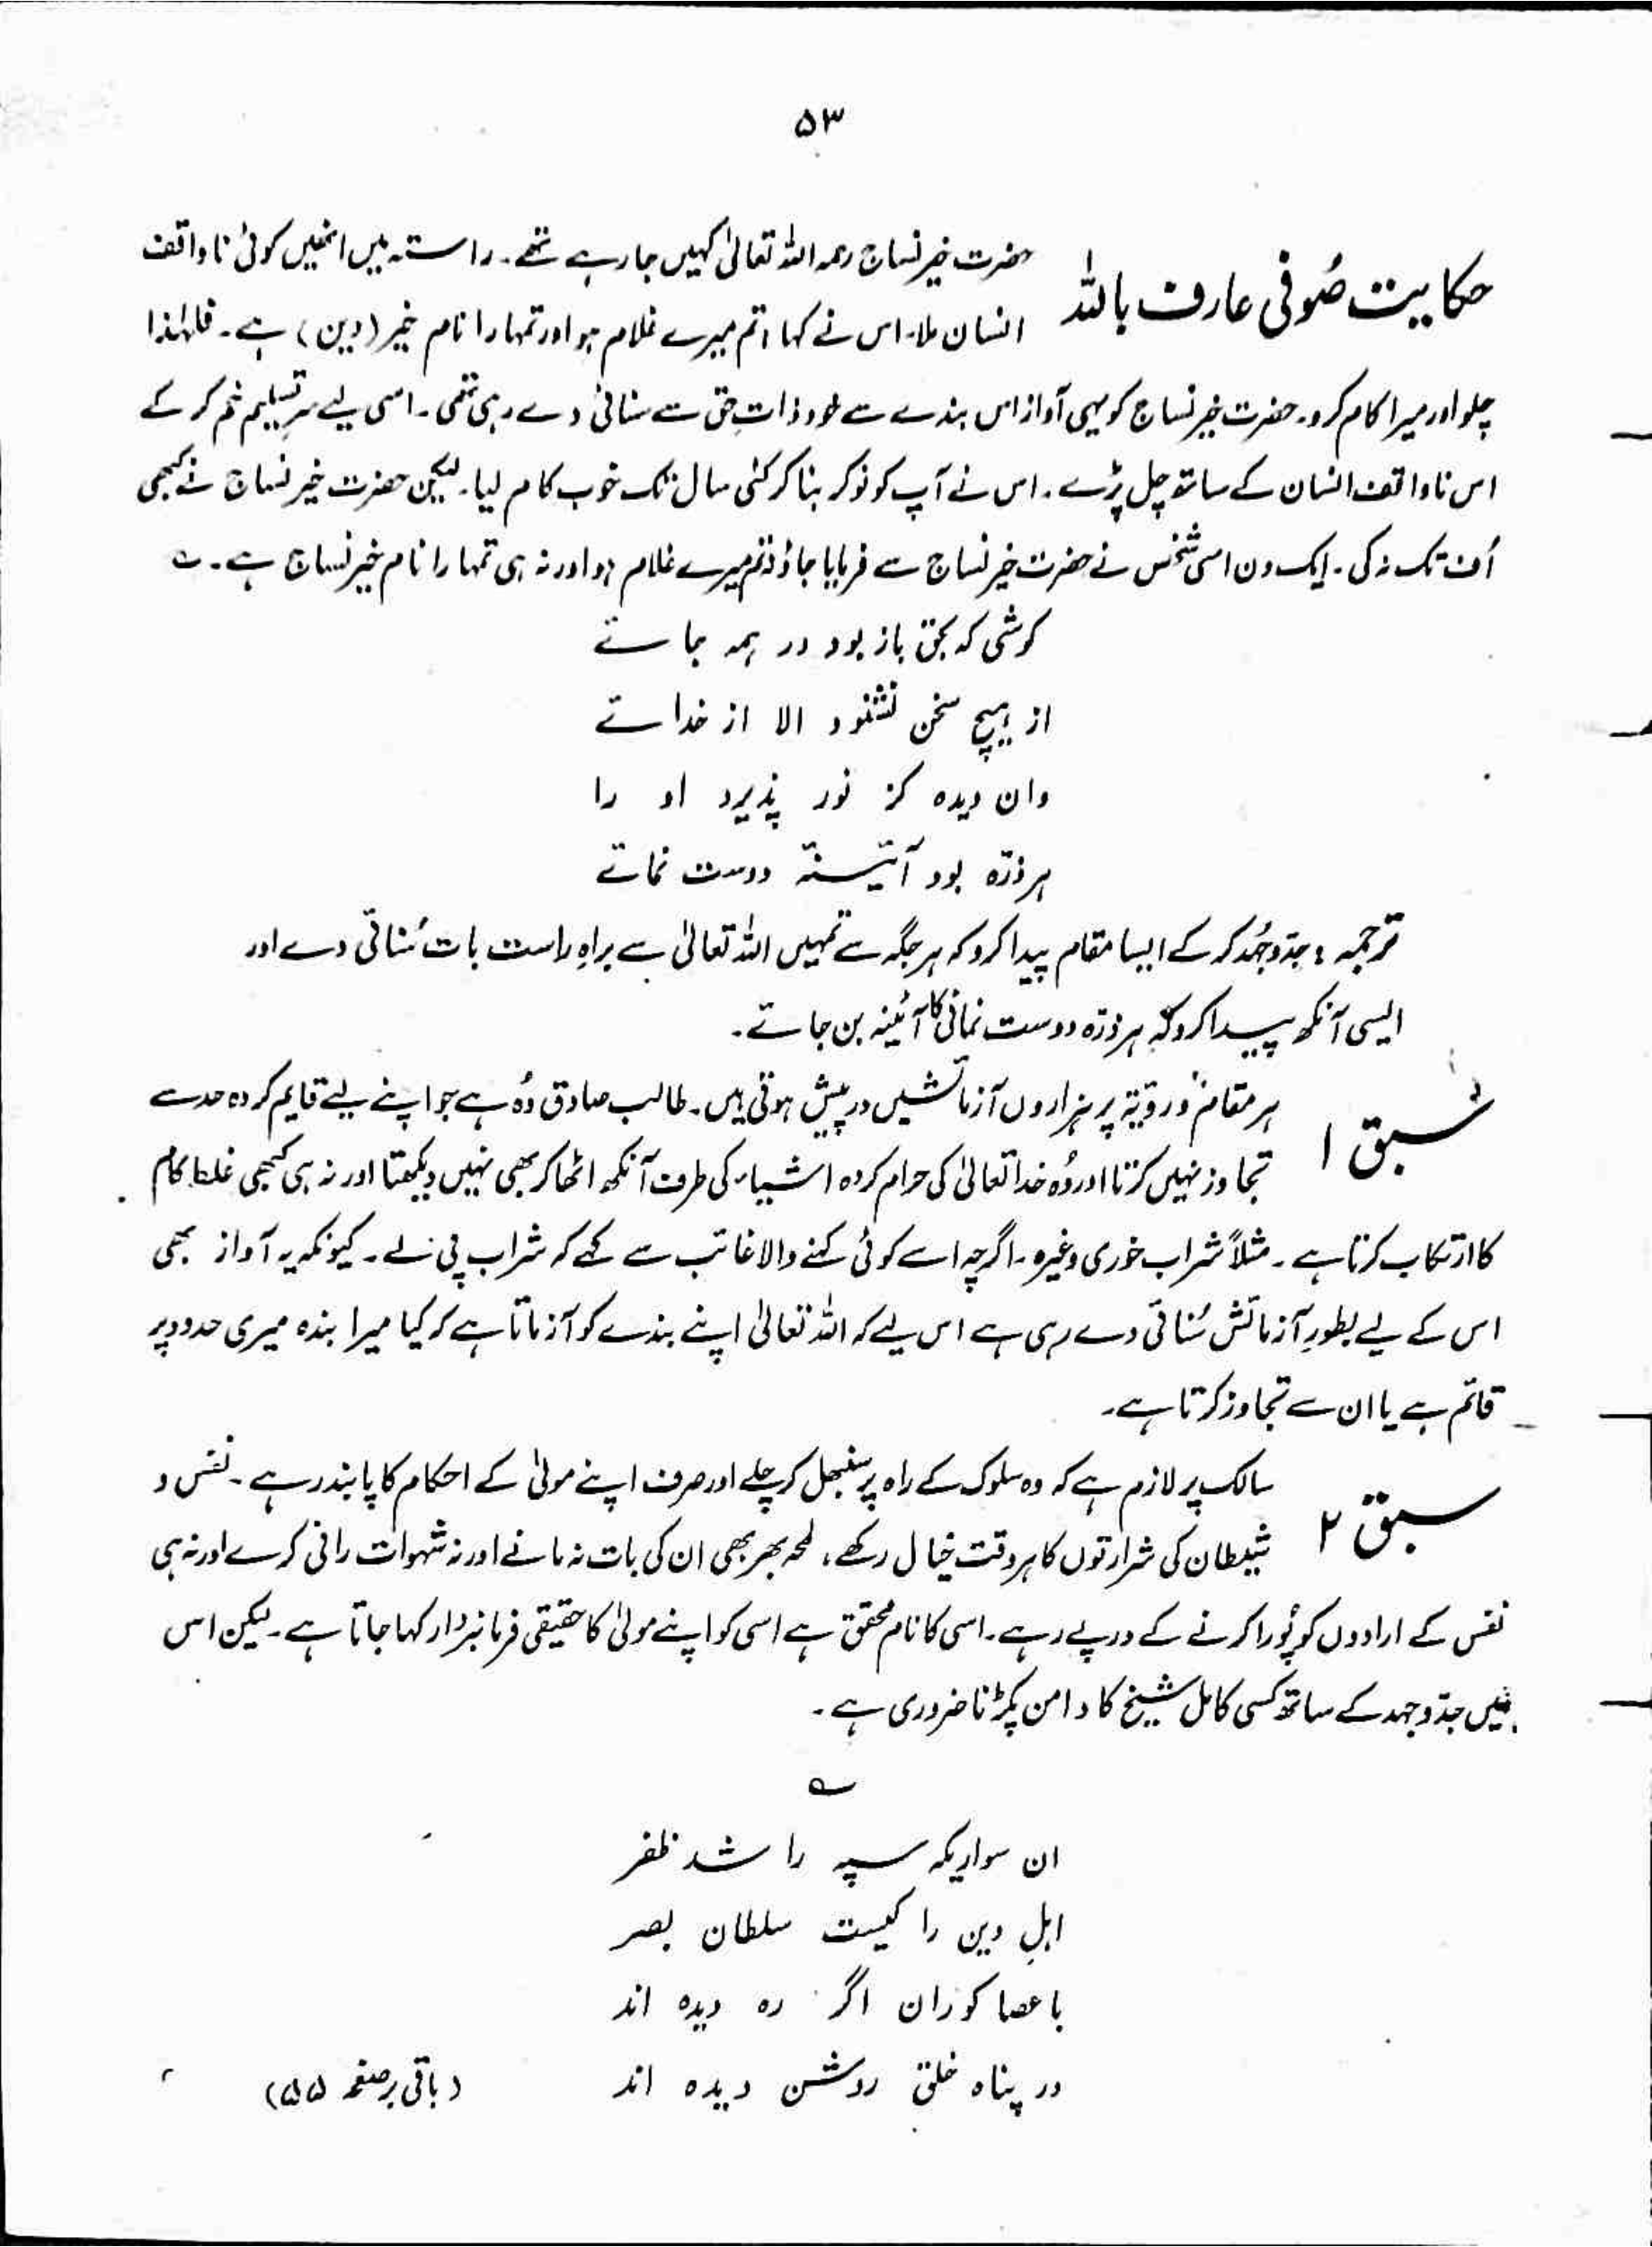 ۵۳
حکایت صُوفی عارف باللہ
حضرت خیر نساج رحمہ اللہ تعالیٰ کہیں جا رہے تھے۔ راستہ میں انھیں کوئی ناواقف
انسان ملا۔ اس نے کہا تم میرے غلام ہو اور تمہارا نام خیر (دین) ہے۔ فلہٰذا
چلو اور میرا کام کرو۔ حضرت خیر نساج کو یہی آواز اس بندے سے خود ذاتِ حق سے سنائی دے رہی تھی۔ اسی لیے سرِ تسلیم خم کر کے
اس ناواقف انسان کے ساتھ چل پڑے۔ اس نے آپ کو نوکر بنا کر کئی سال تک خوب کام لیا۔ لیکن حضرت خیر نساج نے کبھی
اُف تک نہ کی۔ ایک دن اسی شخص نے حضرت خیر نساج سے فرمایا جاؤ نہ تم میرے غلام ہو اور نہ ہی تمہارا نام خیر نساج ہے۔ ؎
گوشی کہ بحق باز بود در ہمہ جائے
از ہیچ سخن نشنود الا از خدائے
وان دیدہ کز نور پذیرد او را
ہر ذرّہ بود آئینۂ دوست نمائے
ترجمہ : جدّوجُہد کر کے ایسا مقام پیدا کرو کہ ہر جگہ سے تمہیں اللہ تعالیٰ سے براہِ راست بات سُنائی دے اور
ایسی آنکھ پیدا کرو کہ ہر ذرّہ دوست نمائی کا آئینہ بن جائے۔
سبق ۱
ہر مقام و رویّہ پر ہزاروں آزمائشیں درپیش ہوتی ہیں۔ طالب صادق وُہ ہے جو اپنے لیے قایم کردہ حد سے
تجاوز نہیں کرتا اور وُہ خدا تعالیٰ کی حرام کردہ اشیاء کی طرف آنکھ اٹھا کر بھی نہیں دیکھتا اور نہ ہی کبھی غلط کام
کا ارتکاب کرتا ہے۔ مثلاً شراب خوری وغیرہ۔ اگرچہ اسے کوئی کہنے والا غائب سے کہے کہ شراب پی لے۔ کیونکہ یہ آواز بھی
اس کے لیے بطورِ آزمائش سُنائی دے رہی ہے اس لیے کہ اللہ تعالیٰ اپنے بندے کو آزماتا ہے کہ کیا میرا بندہ میری حدود پر
قائم ہے یا ان سے تجاوز کرتا ہے۔
سبق ۲
سالک پر لازم ہے کہ وہ سلوک کے راہ پر سنبھل کر چلے اور صرف اپنے مولیٰ کے احکام کا پابند رہے۔ نفس و
شیطان کی شرارتوں کا ہر وقت خیال رکھے، لمحہ بھر بھی ان کی بات نہ مانے اور نہ شہوات رانی کرے اور نہ ہی
نفس کے ارادوں کو پُورا کرنے کے درپے رہے۔ اسی کا نام محقق ہے اسی کو اپنے مولیٰ کا حقیقی فرمانبردار کہا جاتا ہے۔ لیکن اس
میں جدّوجہد کے ساتھ کسی کامل شیخ کا دامن پکڑنا ضروری ہے۔
؎
ان سواریکہ سپہ را شد ظفر
اہلِ دین را کیست سلطان بصر
با عصا کوران اگر رہ دیدہ اند
در پناہ خلق روشن دیدہ اند
(باقی بر صفحہ ۵۵)